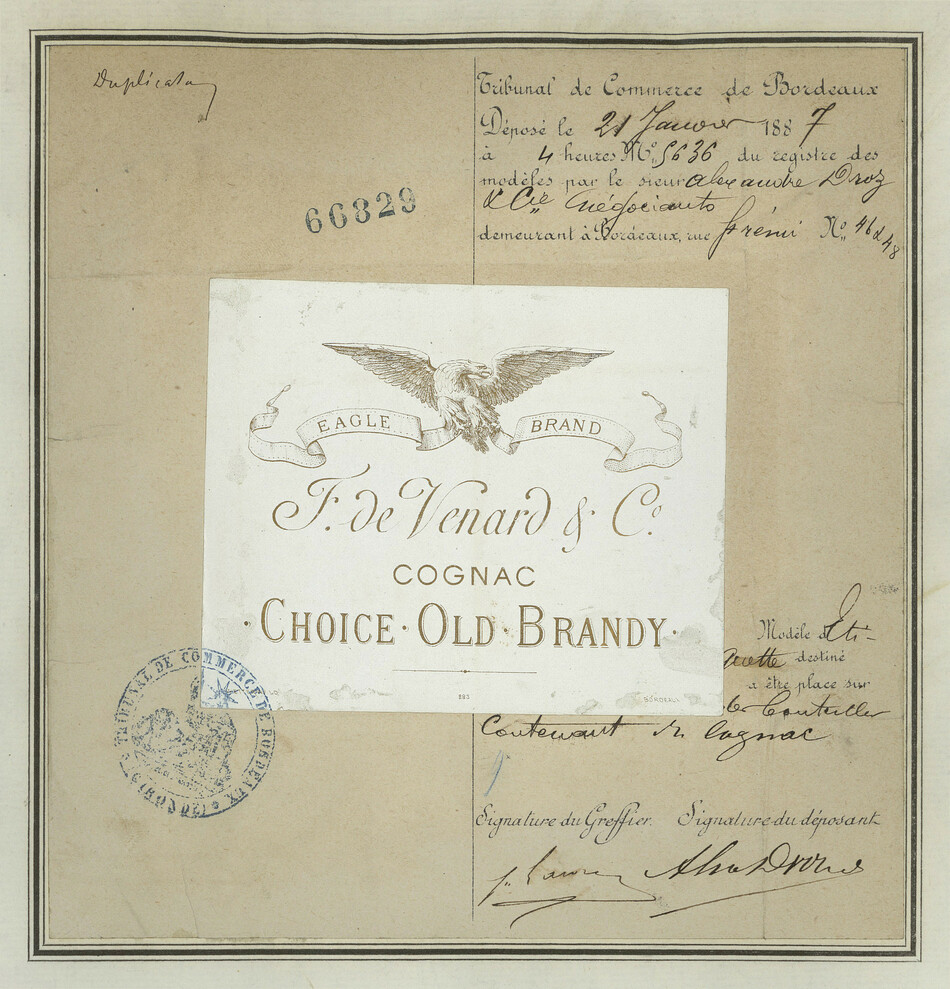 Duplicata
Tribunal de Commerce de Bordeaux
Déposé le 21 Janvier 1887
à 4 heures No 5636 du registre des
modèles par le sieur Alexandre Droz
& Cie négociants
demeurant à Bordeaux, rue No 46 & 48
66829
EAGLE BRAND
F. de Venard & Co.
COGNAC
·CHOICE·OLD·BRANDY·
183
BORDEAUX
Modèle d'Eti-
quette destiné
a être place sur
bouteilles
Contenant du Cognac
TRIBUNAL DE COMMERCE DE BORDEAUX
(GIRONDE)
Signature du Greffier. Signature du déposant